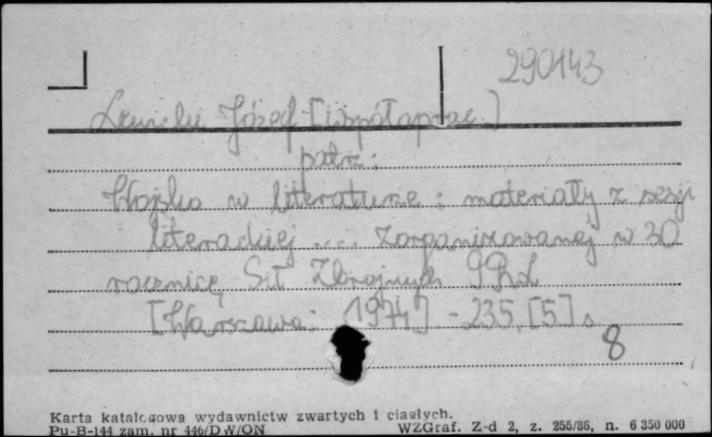 290143
Józef [współoprac.]
patrz:
Wojsko w literaturze: materiały z sesji
literackiej .... zorganizowanej w 30
rocznicę Sił Zbrojnych PRL
[Warszawa: (1974] - 235, [5] s.
8
Karta katalogowa wydawnictw zwartych i ciągłych.
Pu-B-144 zam. nr 446/DW/ON WZGraf. Z-d 2, z. 255/86, n. 6 350 000